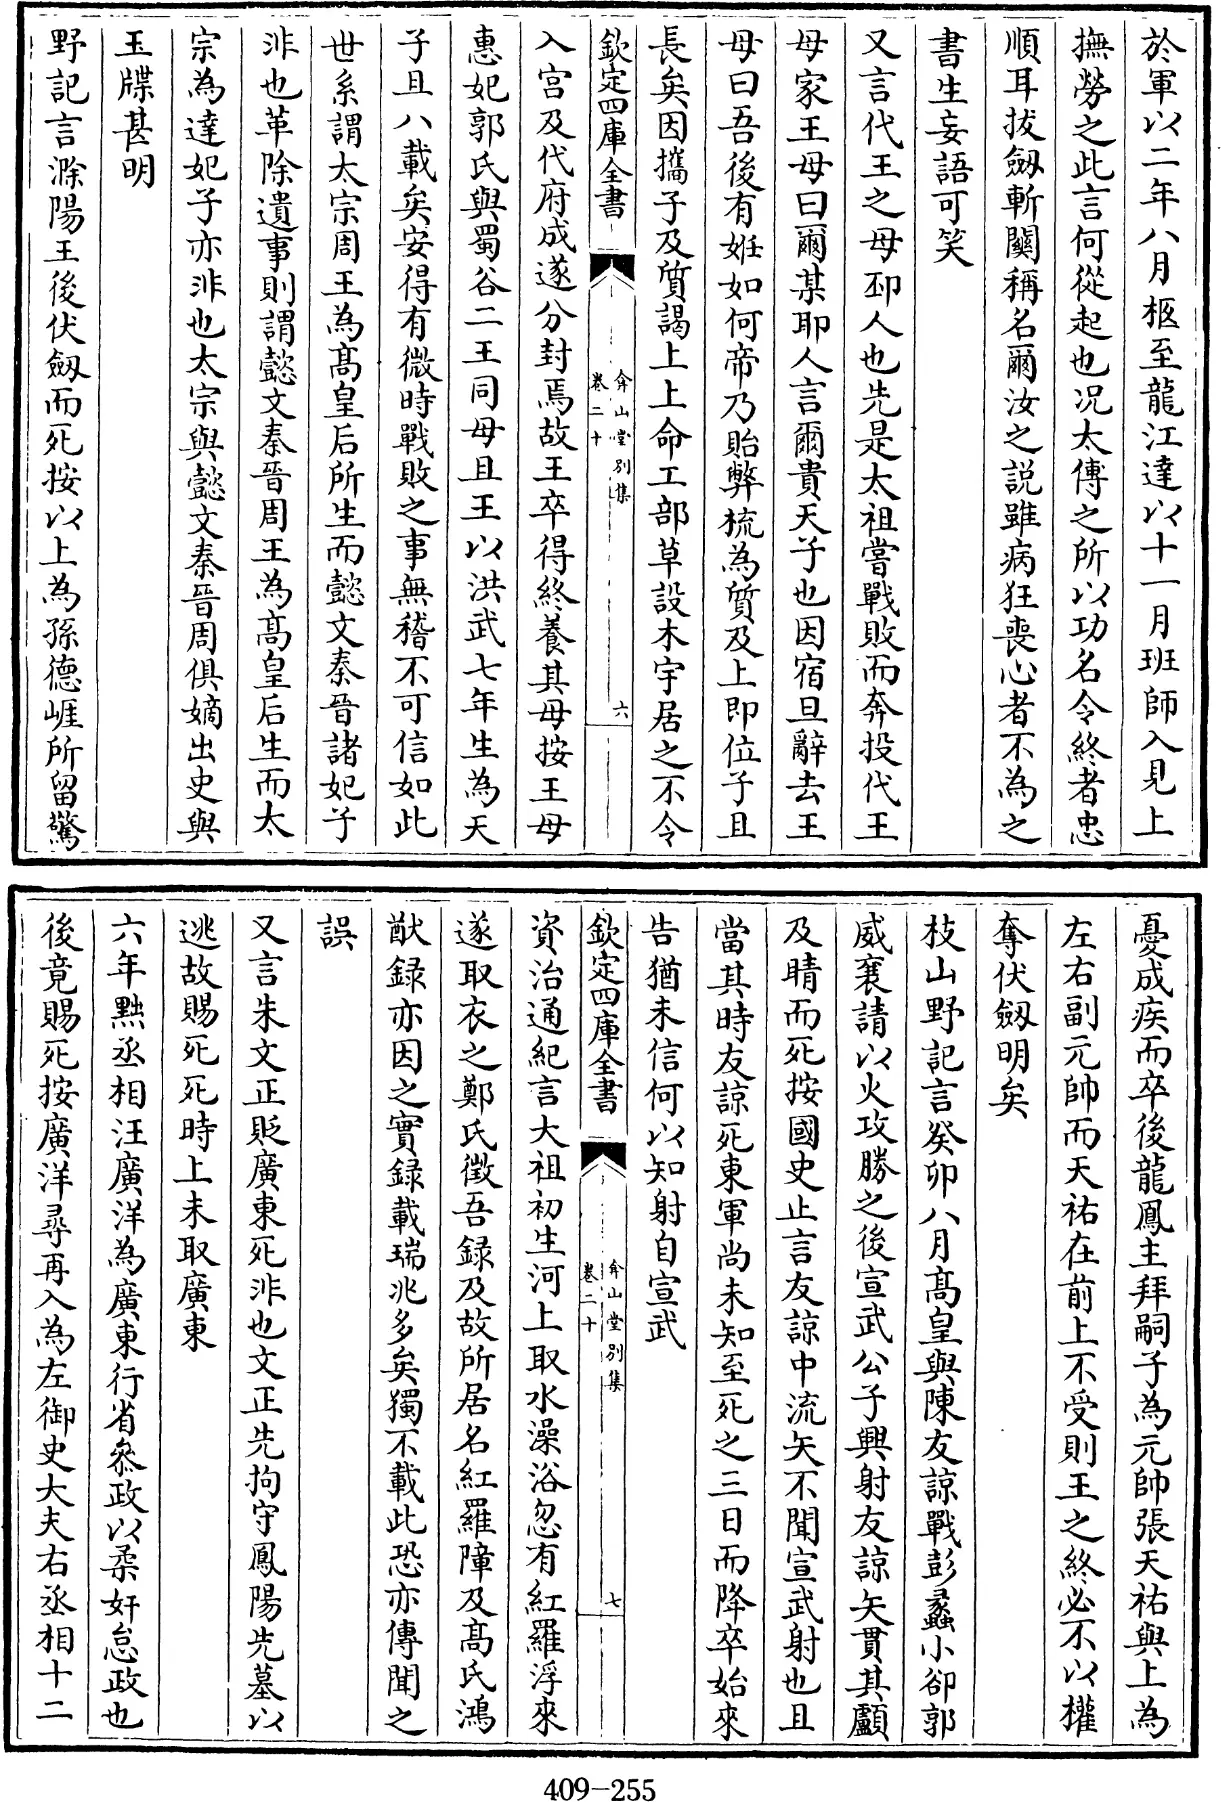 於軍以二年八月柩至龍江達以十一月班師入見上
撫勞之此言何從起也况太傅之所以功名令終者忠
順耳拔劔斬關稱名爾汝之説雖病狂喪心者不為之
書生妄語可笑
又言代王之母邳人也先是太祖嘗戰敗而奔投代王
母家王母曰爾某耶人言爾貴天子也因宿旦辭去王
母曰吾後有姙如何帝乃貽弊梳為質及上即位子且
長矣因攜子及質謁上上命工部草設木宇居之不令
欽定四庫全書
弇山堂别集
卷二十
六
入宫及代府成遂分封焉故王卒得終養其母按王母
惠妃郭氏與蜀谷二王同母且王以洪武七年生為天
子且八載矣安得有微時戰敗之事無稽不可信如此
世系謂太宗周王為髙皇后所生而懿文秦晉諸妃子
非也革除遺事則謂懿文秦晉周王為髙皇后生而太
宗為達妃子亦非也太宗與懿文秦晉周俱嫡出史與
玉牒甚明
野記言滁陽王後伏劔而死按以上為孫德崖所留驚
憂成疾而卒後龍鳳主拜嗣子為元帥張天祐與上為
左右副元帥而天祐在前上不受則王之終必不以權
奪伏劔明矣
枝山野記言癸卯八月髙皇與陳友諒戰彭蠡小卻郭
威襄請以火攻勝之後宣武公子興射友諒矢貫其顱
及睛而死按國史止言友諒中流矢不聞宣武射也且
當其時友諒死東軍尚未知至死之三日而降卒始來
告猶未信何以知射自宣武
欽定四庫全書
弇山堂别集
卷二十
七
資治通紀言大祖初生河上取水澡浴忽有紅羅浮來
遂取衣之鄭氏徴吾録及故所居名紅羅障及髙氏鴻
猷録亦因之實録載瑞兆多矣獨不載此恐亦傳聞之
誤
又言朱文正貶廣東死非也文正先拘守鳳陽先墓以
逃故賜死死時上未取廣東
六年黜丞相汪廣洋為廣東行省叅政以柔奸怠政也
後竟賜死按廣洋尋再入為左御史大夫右丞相十二
409-255